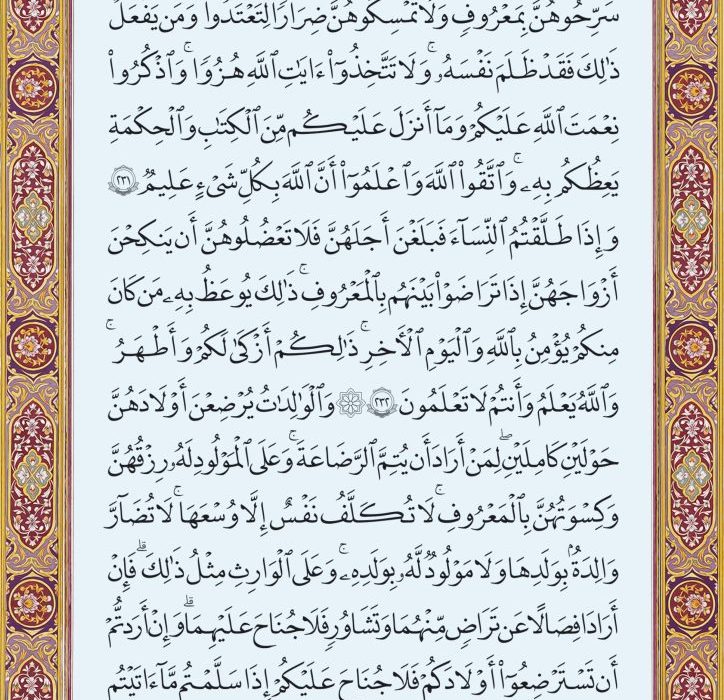 سَرِّحُوهُنَّ بِمَعْرُوفٍۚ وَلَا تُمْسِكُوهُنَّ ضِرَارٗا لِّتَعْتَدُوا۟ۚ وَمَن يَفْعَلْ
ذَٰلِكَ فَقَدْ ظَلَمَ نَفْسَهُۥۚ وَلَا تَتَّخِذُوٓا۟ ءَايَٰتِ ٱللَّهِ هُزُوٗاۚ وَٱذْكُرُوا۟
نِعْمَتَ ٱللَّهِ عَلَيْكُمْ وَمَآ أَنزَلَ عَلَيْكُم مِّنَ ٱلْكِتَٰبِ وَٱلْحِكْمَةِ
يَعِظُكُم بِهِۦۚ وَٱتَّقُوا۟ ٱللَّهَ وَٱعْلَمُوٓا۟ أَنَّ ٱللَّهَ بِكُلِّ شَىْءٍ عَلِيمٞ ٢٣١
وَإِذَا طَلَّقْتُمُ ٱلنِّسَآءَ فَبَلَغْنَ أَجَلَهُنَّ فَلَا تَعْضُلُوهُنَّ أَن يَنكِحْنَ
أَزْوَٰجَهُنَّ إِذَا تَرَٰضَوْا۟ بَيْنَهُم بِٱلْمَعْرُوفِۗ ذَٰلِكَ يُوعَظُ بِهِۦ مَن كَانَ
مِنكُمْ يُؤْمِنُ بِٱللَّهِ وَٱلْيَوْمِ ٱلْأٓخِرِۗ ذَٰلِكُمْ أَزْكَىٰ لَكُمْ وَأَطْهَرُۚ
وَٱللَّهُ يَعْلَمُ وَأَنتُمْ لَا تَعْلَمُونَ ٢٣٢ ۞ وَٱلْوَٰلِدَٰتُ يُرْضِعْنَ أَوْلَٰدَهُنَّ
حَوْلَيْنِ كَامِلَيْنِۖ لِمَنْ أَرَادَ أَن يُتِمَّ ٱلرَّضَاعَةَۚ وَعَلَى ٱلْمَوْلُودِ لَهُۥ رِزْقُهُنَّ
وَكِسْوَتُهُنَّ بِٱلْمَعْرُوفِۚ لَا تُكَلَّفُ نَفْسٌ إِلَّا وُسْعَهَاۚ لَا تُضَآرَّ
وَٰلِدَةُۢ بِوَلَدِهَا وَلَا مَوْلُودٞ لَّهُۥ بِوَلَدِهِۦۚ وَعَلَى ٱلْوَارِثِ مِثْلُ ذَٰلِكَۗ فَإِنْ
أَرَادَا فِصَالًا عَن تَرَاضٖ مِّنْهُمَا وَتَشَاوُرٖ فَلَا جُنَاحَ عَلَيْهِمَاۗ وَإِنْ أَرَدتُّمْ
أَن تَسْتَرْضِعُوٓا۟ أَوْلَٰدَكُمْ فَلَا جُنَاحَ عَلَيْكُمْ إِذَا سَلَّمْتُم مَّآ ءَاتَيْتُم